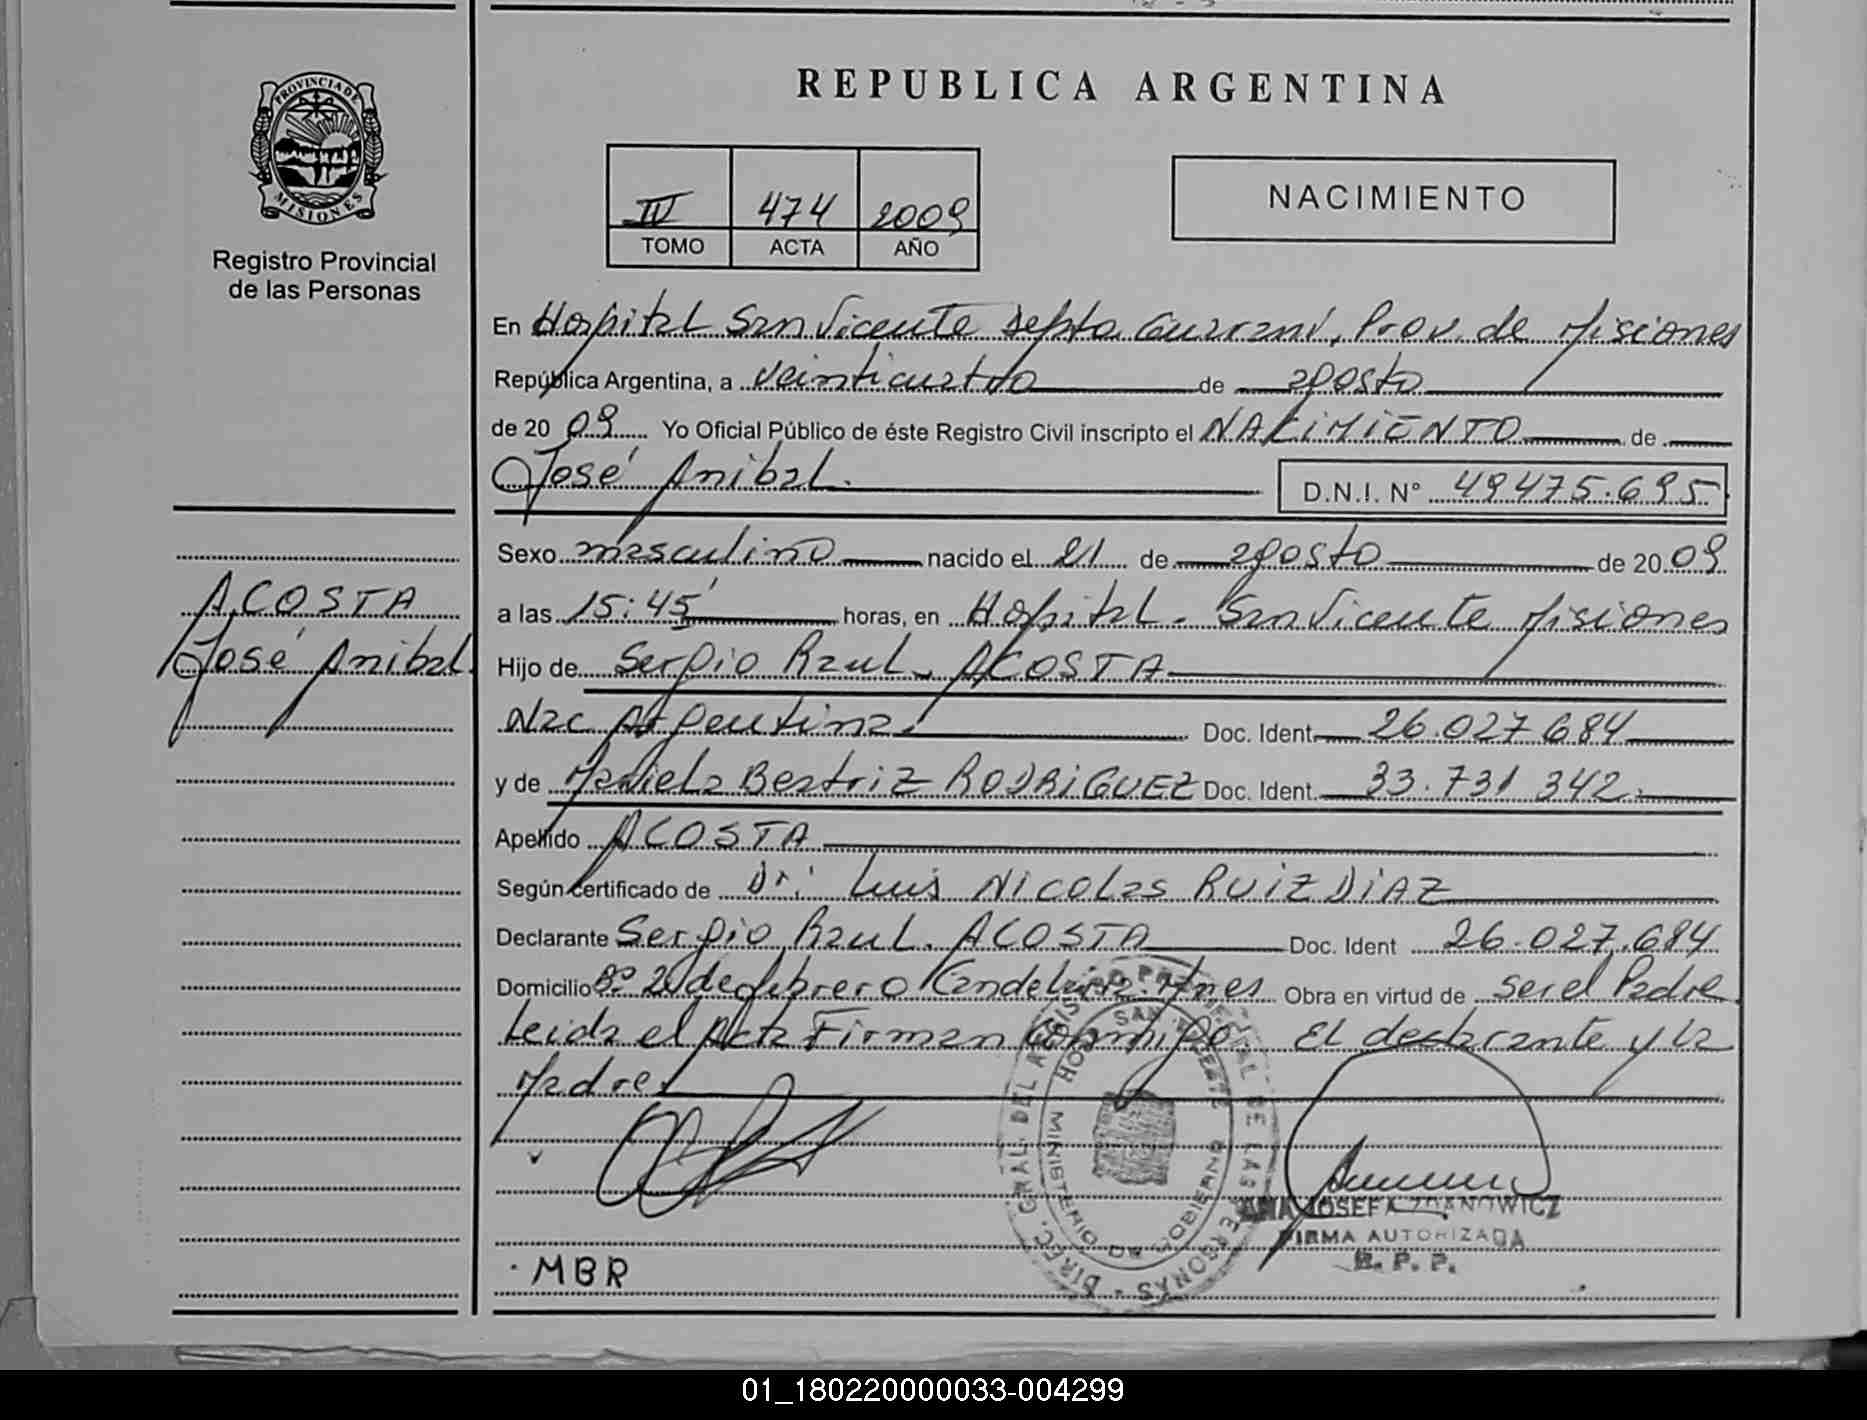 REPUBLICA ARGENTINA
PROVINCIA DE
MISIONES
Registro Provincial
de las Personas
IV 474 2009
TOMO ACTA AÑO
NACIMIENTO
En Hospital San Vicente depto Guaraní, Prov. de Misiones
República Argentina, a veinticuatro de agosto
de 20 09 Yo Oficial Público de éste Registro Civil inscripto el NACIMIENTO de
José Anibal.
D.N.I. Nº 49475.695
Sexo masculino nacido el 21 de agosto de 20 09
ACOSTA
José Anibal.
a las 15:45 horas, en Hospital. San Vicente Misiones
Hijo de Sergio Raul. ACOSTA
Nac Argentina. Doc. Ident. 26.027 684
y de Mariela Beatriz RODRIGUEZ Doc. Ident. 33.731 342.
Apellido ACOSTA
Según certificado de Dr. Luis Nicolas RUIZ DIAZ
Declarante Sergio Raul. ACOSTA Doc. Ident 26.027.684
Domicilio Bº 2 de febrero Candelaria. Mnes Obra en virtud de ser el Padre
Leida el Acta Firman conmigo El declarante y la
Madre.
DIREC. GRAL. DEL REGISTRO PROVINCIAL DE LAS PERSONAS
MINISTERIO DE GOBIERNO
HOSP. SAN VICENTE
ANA JOSEFA ZDANOWICZ
FIRMA AUTORIZADA
R. P. P.
MBR
01_180220000033-004299